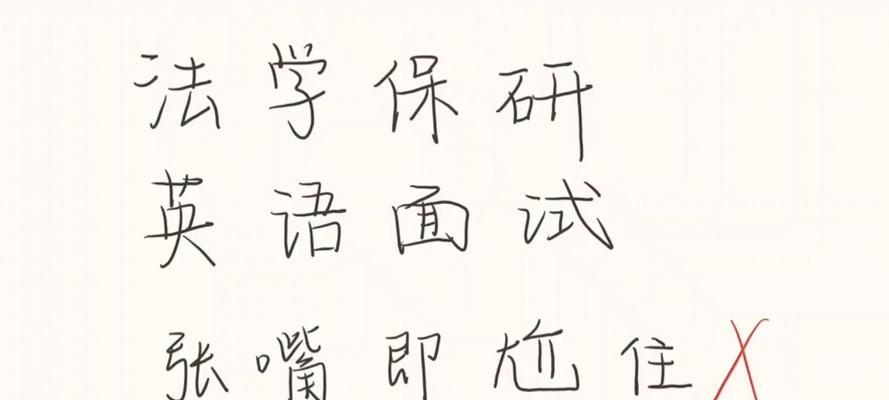 法学保研
英语面试
张嘴即尬住